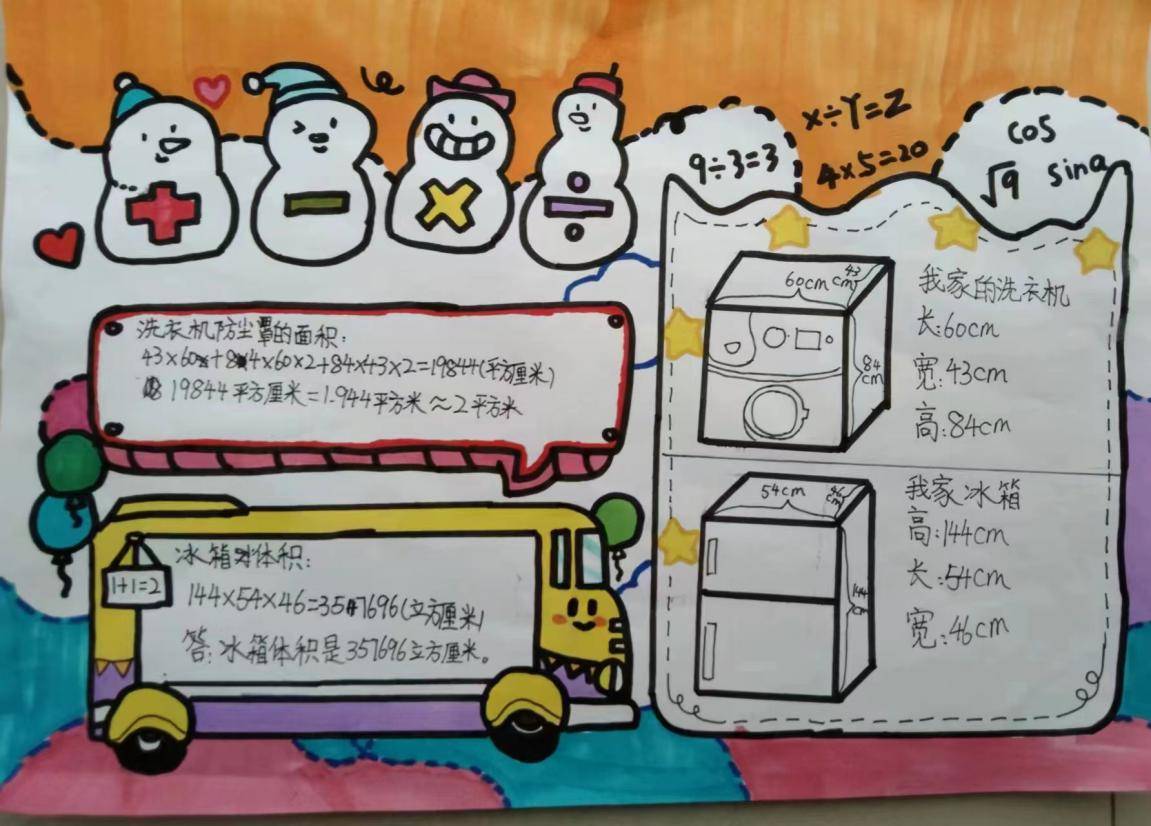 9÷3=3
x÷Y=Z
4×5=20
cos
√9 sina
洗衣机防尘罩的面积:
43×60+84×60×2+84×43×2=19844(平方厘米)
19844平方厘米=1.944平方米≈2平方米
1+1=2
冰箱体积:
144×54×46=357696(立方厘米)
答:冰箱体积是357696立方厘米。
60cm
43
cm
84
cm
我家的洗衣机
长:60cm
宽:43cm
高:84cm
54cm
46
cm
144
cm
我家冰箱
高:144cm
长:54cm
宽:46cm